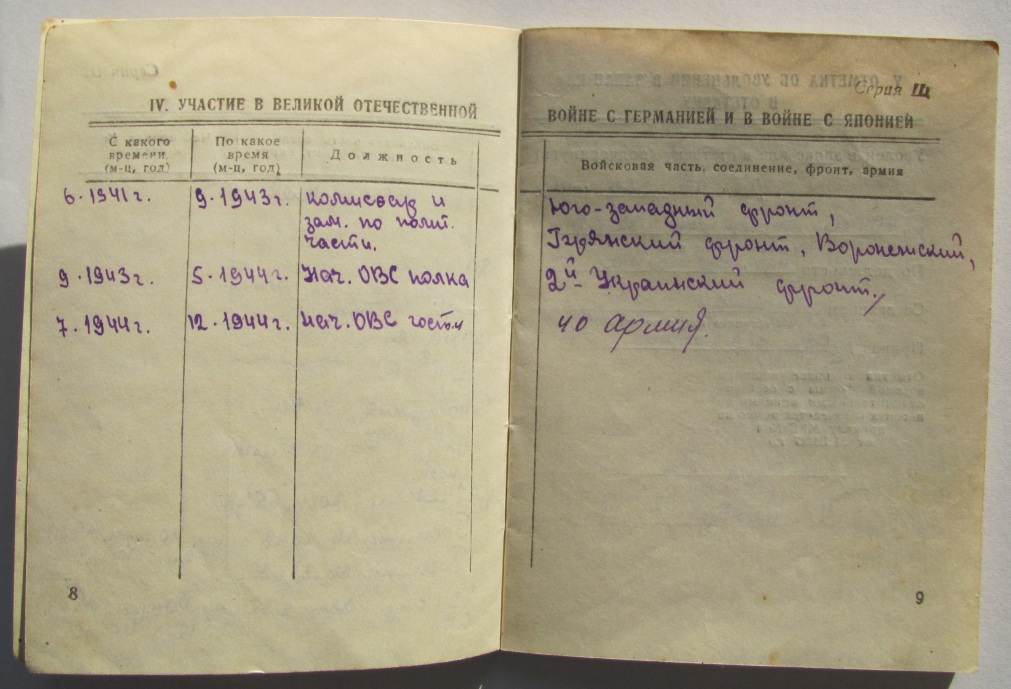 IV. УЧАСТИЕ В ВЕЛИКОЙ ОТЕЧЕСТВЕННОЙ
С какого времени (м-ц, год)
По какое время (м-ц, год)
Должность
6·1941г. 9·1943г. комиссар и
зам. по полит.
части.
9·1943г. 5·1944г. Нач. ОВС полка
7·1944г. 12·1944г. Нач. ОВС
8
Серия Щ
ВОЙНЕ С ГЕРМАНИЕЙ И В ВОЙНЕ С ЯПОНИЕЙ
Войсковая часть, соединение, фронт, армия
Юго-западный фронт,
фронт, Воронежский,
2й Украинский фронт,
40 армия.
9